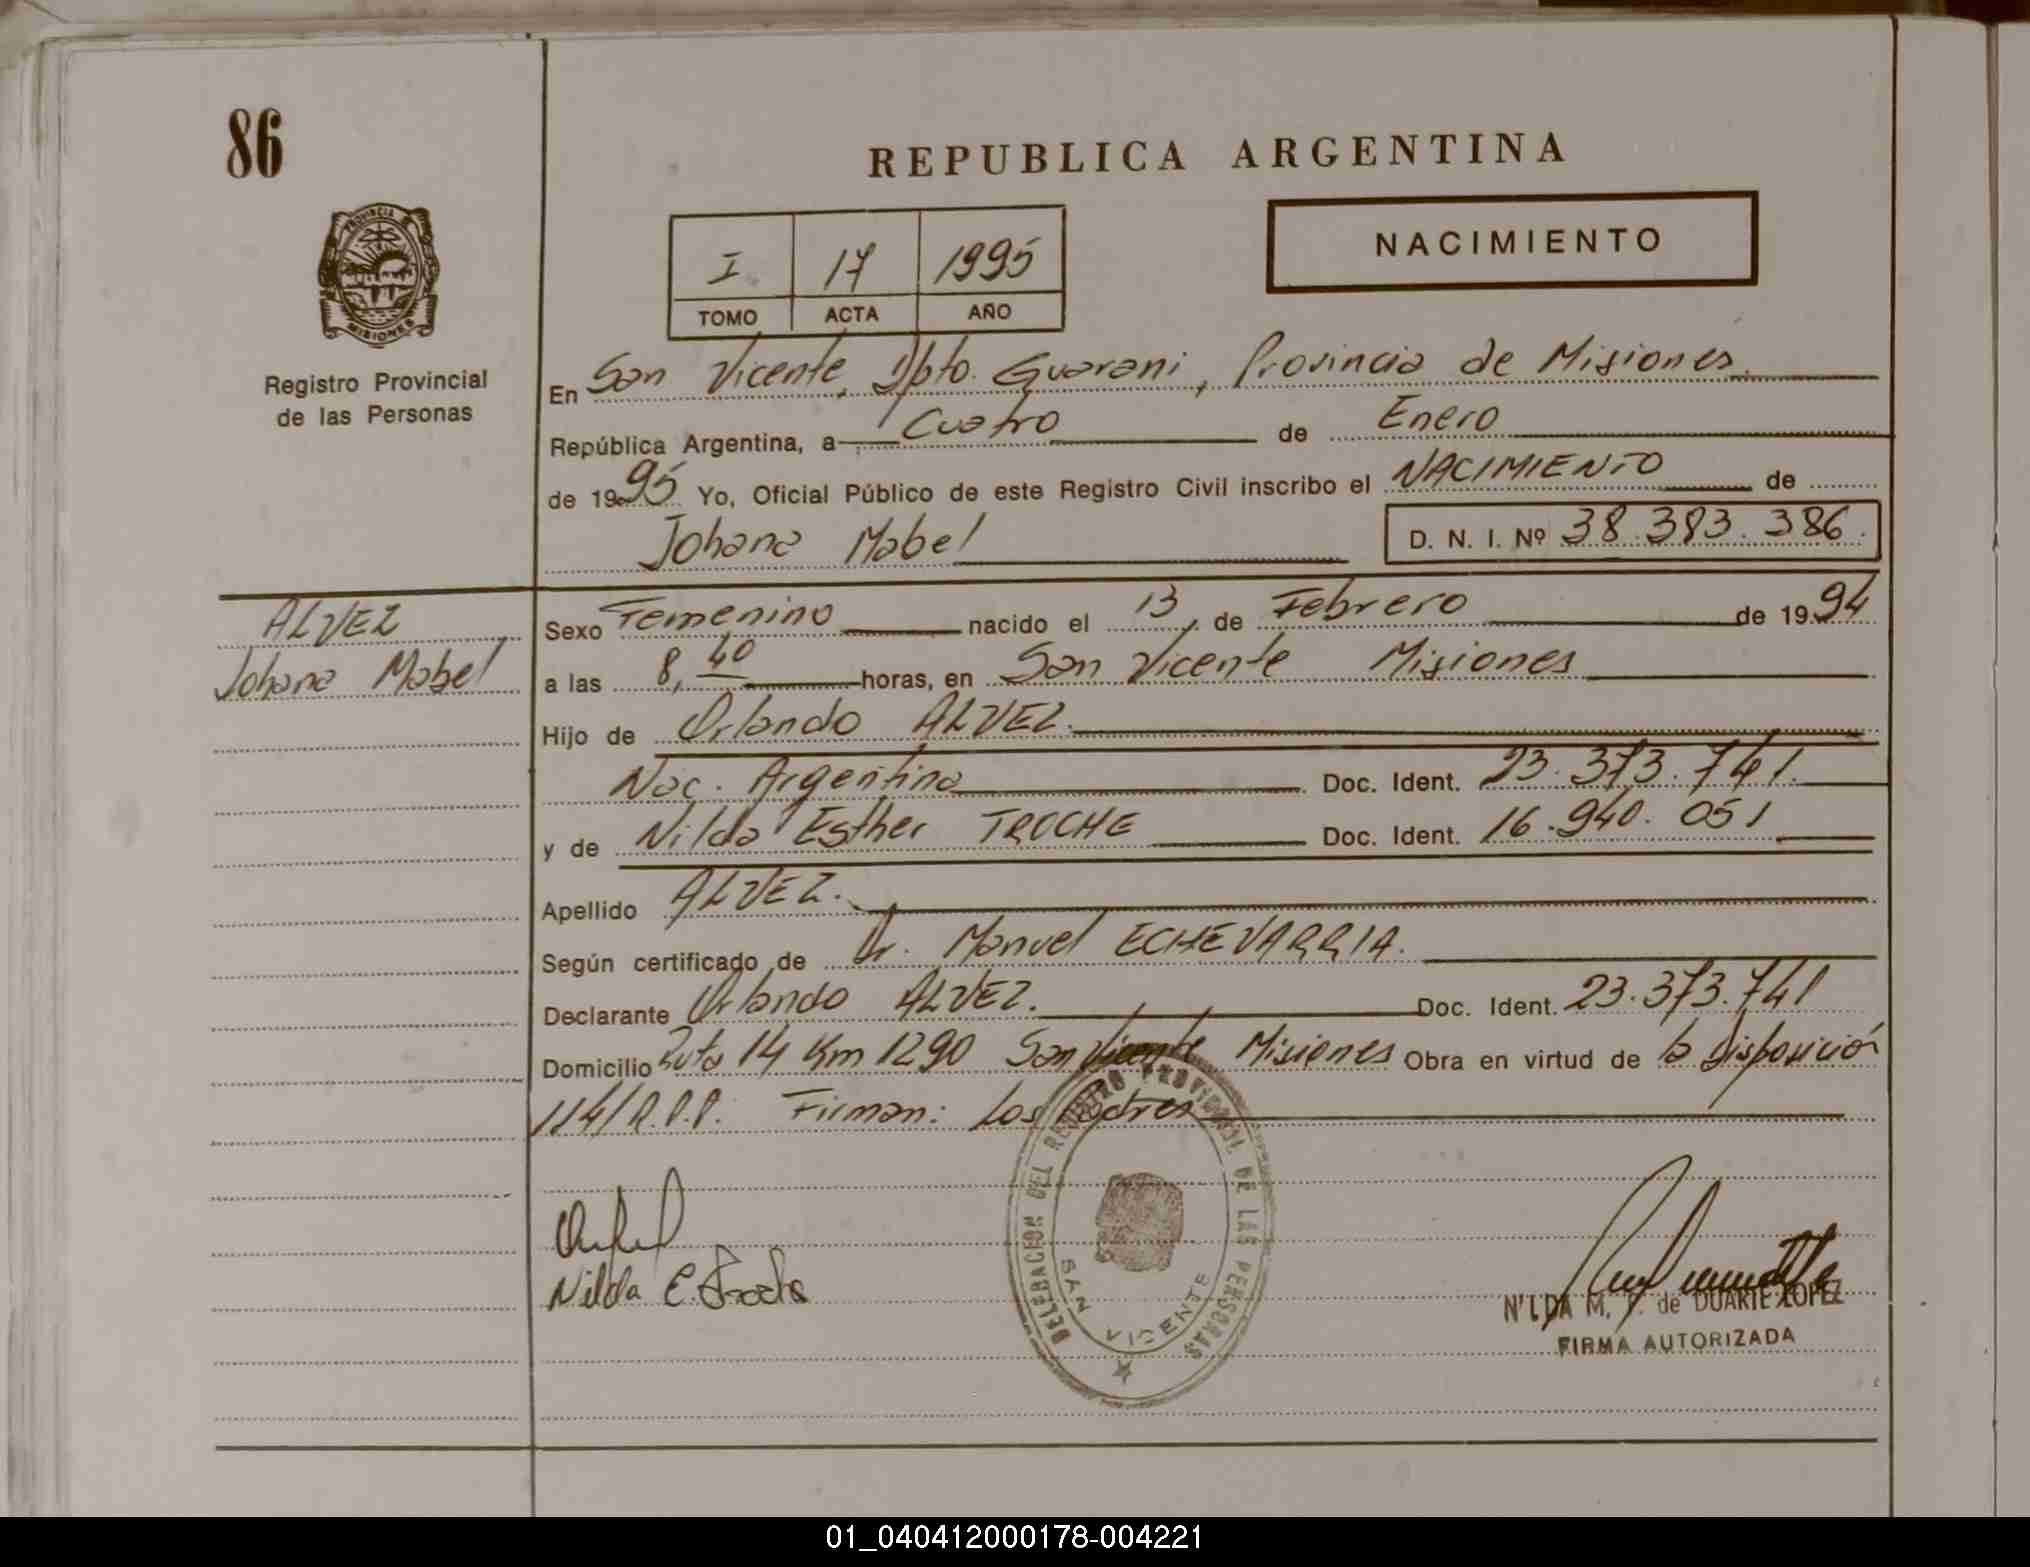 86
REPUBLICA ARGENTINA
PROVINCIA DE
MISIONES
Registro Provincial
de las Personas
NACIMIENTO
I 17 1995
TOMO ACTA AÑO
En San Vicente, Dpto. Guarani, Provincia de Misiones
República Argentina, a Cuatro de Enero
de 1995 Yo, Oficial Público de este Registro Civil inscribo el NACIMIENTO de
Johana Mabel D. N. I. Nº 38.383.386.
ALVEZ
Johana Mabel
Sexo Femenino nacido el 13 de Febrero de 1994
a las 8,40 horas, en San Vicente Misiones
Hijo de Orlando ALVEZ.
Nac. Argentina Doc. Ident. 23.373.741.
y de Nilda Esther TROCHE Doc. Ident. 16.940.051
Apellido ALVEZ.
Según certificado de Dr. Manuel ECHEVARRIA.
Declarante Orlando ALVEZ. Doc. Ident. 23.373.741
Domicilio Ruta 14 Km 1290 San Vicente Misiones Obra en virtud de la disposición
114/R.P.P. Firman: Los Padres
DELEGACION DEL REGISTRO PROVINCIAL DE LAS PERSONAS
SAN VICENTE
Nilda E. Troche
NILDA M. de DUARTE LOPEZ
FIRMA AUTORIZADA
01_040412000178-004221